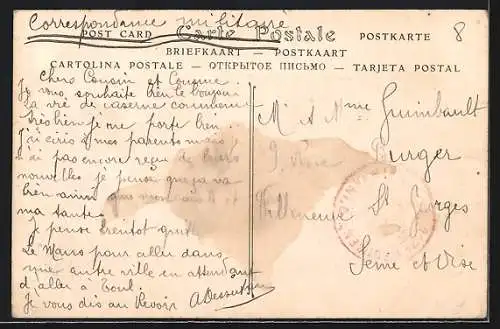 Correspondance militaire
POST CARD — Carte Postale — POSTKARTE
8
BRIEFKAART — POSTKAART
CARTOLINA POSTALE — ОТКРЫТОЕ ПИСЬМО — TARJETA POSTAL
Chers Cousin et Cousine
Je vous souhaite bien le bonjour
la vie de caserne
très bien je me porte bien
J'ai écris à mes parents mais
j'ai pas encore reçu de leurs
nouvelles je pense que ça va
bien ainsi que mon oncle et
ma tante
Je pense bientot quitter
Le Mans pour aller dans
une autre ville en attendant
d'aller à Toul.
Je vous dis au Revoir
M et Mme Guimbault
9, Rue Burger
Villeneuve St Georges
Seine et Oise